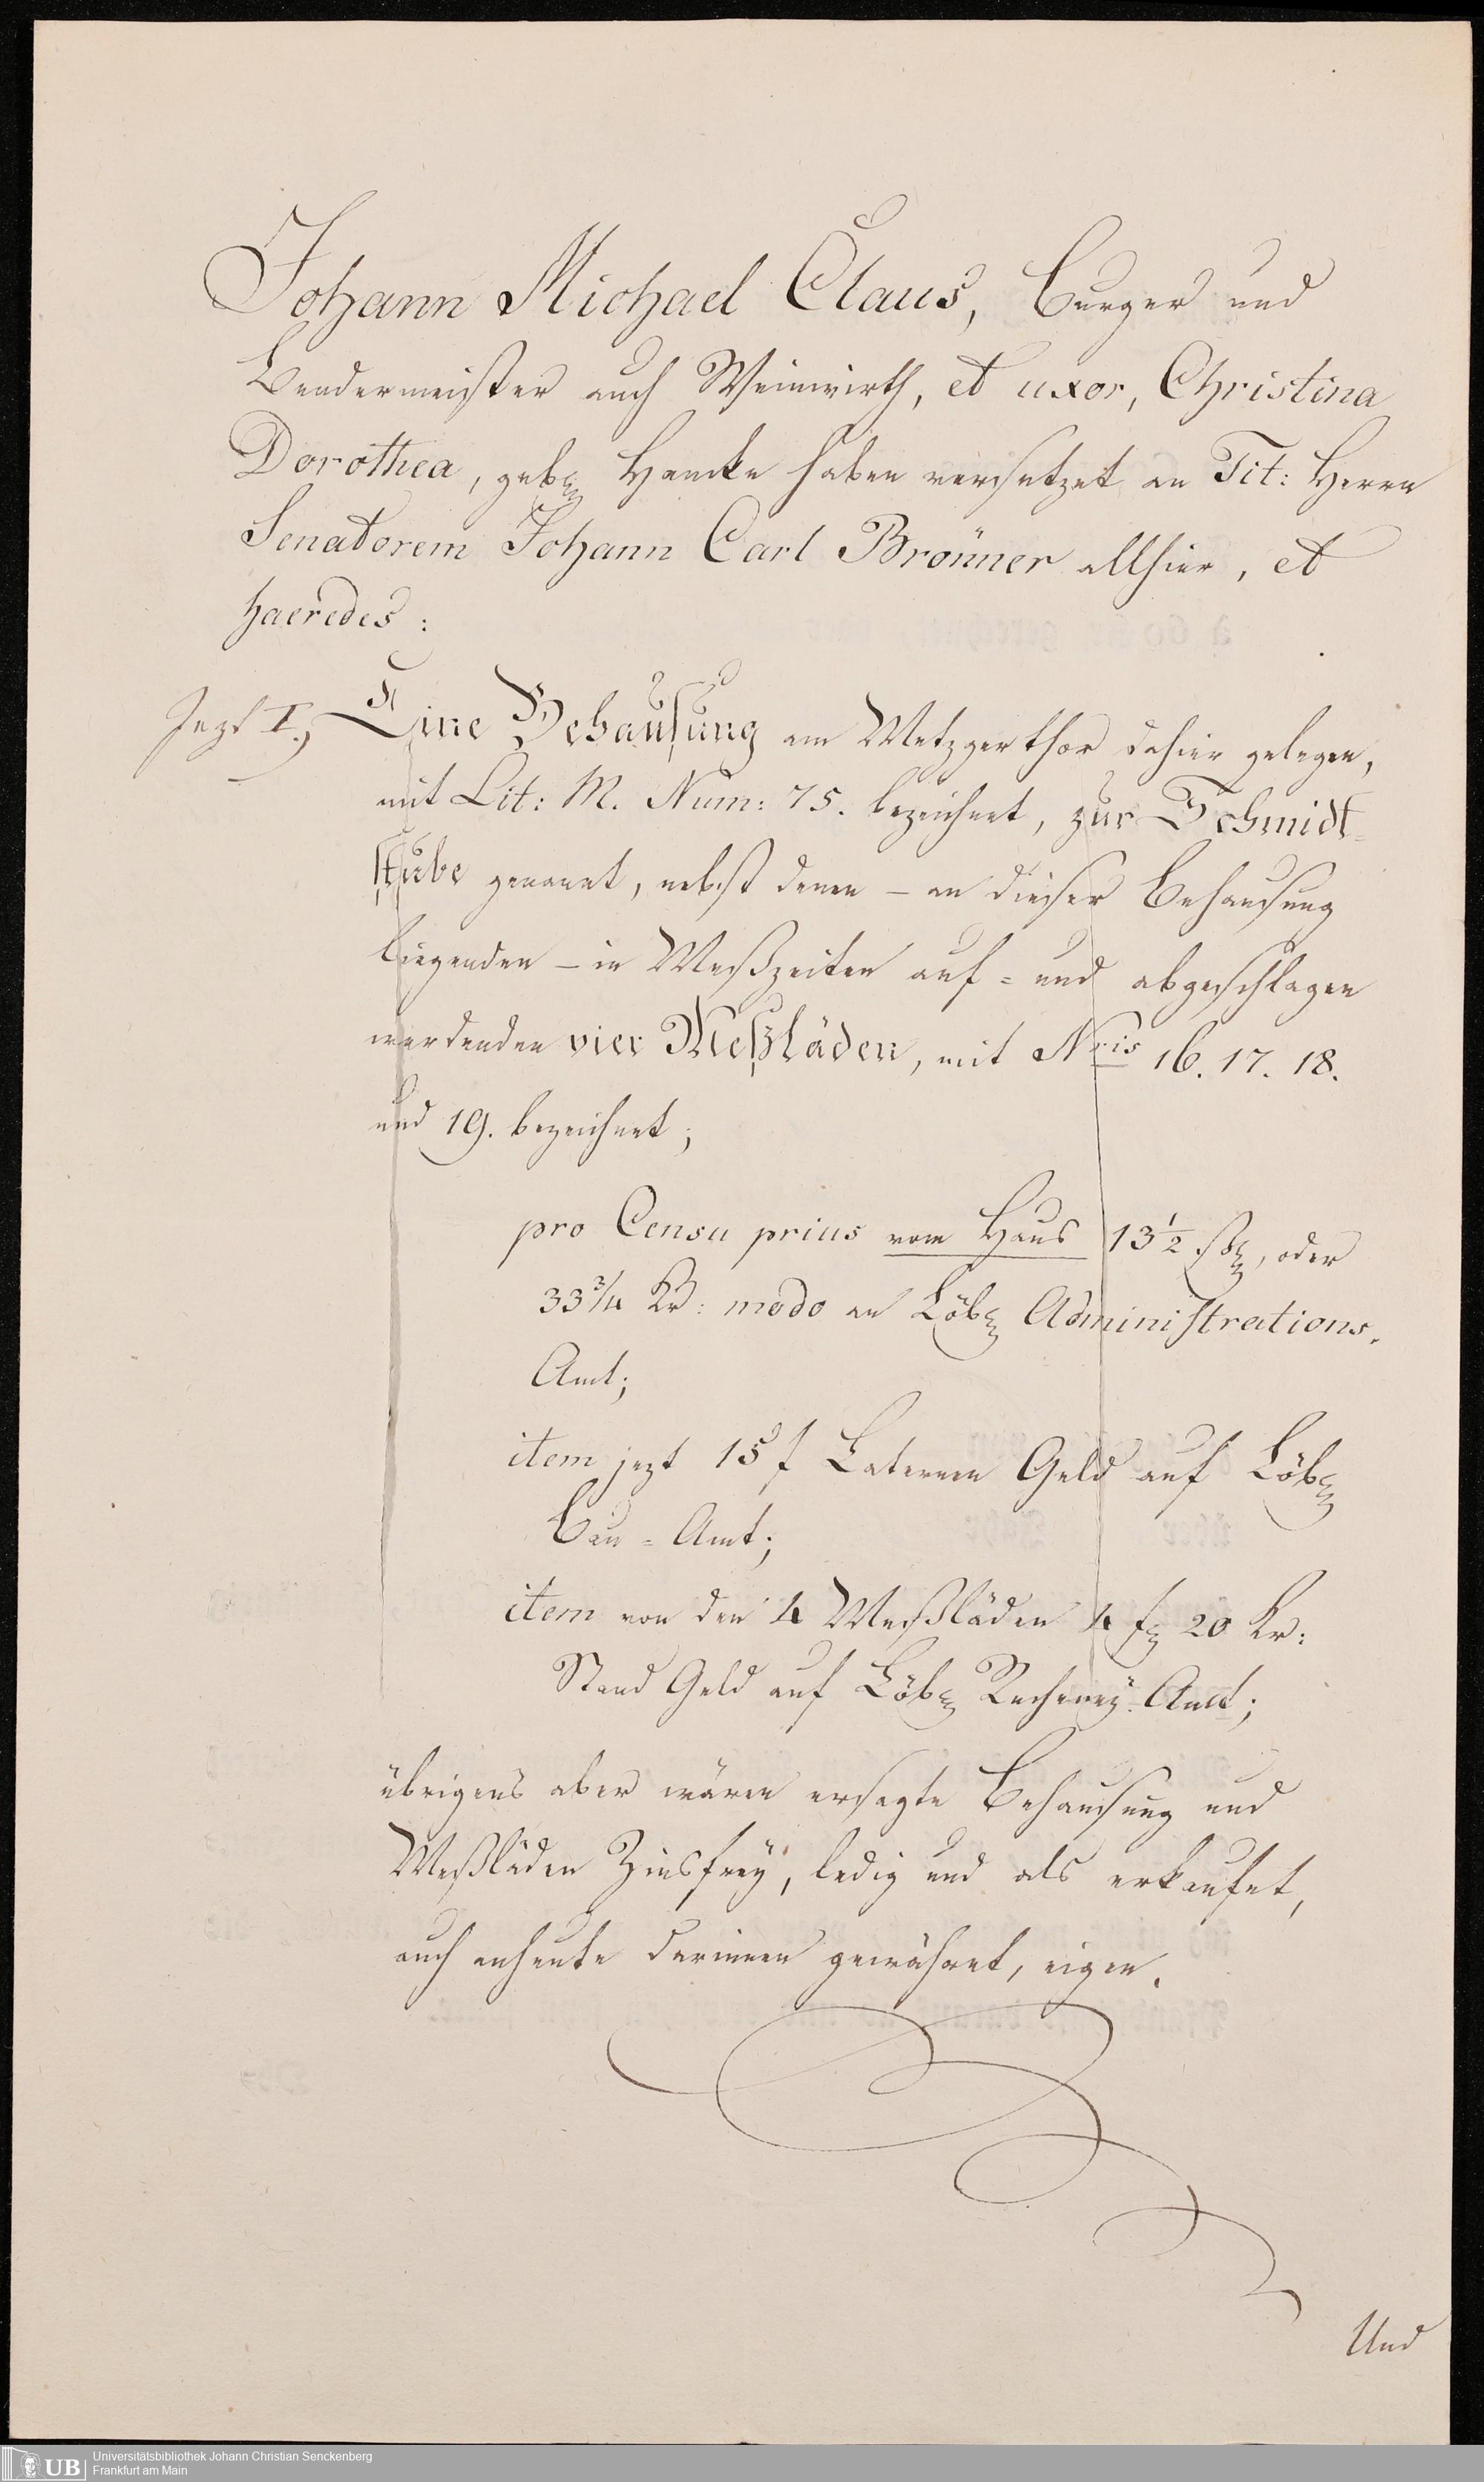 Johann Michael Claus, Burger und
Bendermeister auch Weinwirth, et uxor, Christina
Dorothea, geb. Hancke haben versetzet an Tit: Herrn
Senatorem Johann Carl Brönner allhier, et
haeredes:
Jezt I.) Eine Behausung am Metzgerthor dahier gelegen,
mit Lit: M. Num: 75. bezeichnet, zur Schmidt-
stube genannt, nebst denen – an dieser Behausung
liegenden – in Meßzeiten auf- und abgeschlagen
werdenden vier Meßläden, mit Nris 16. 17. 18.
und 19. bezeichnet;
pro Censu prius vom Haus 13 1/2 ß, oder
33 3/4 Kr: modo an Löbl. Administrations-
Amt;
item jezt 15 f Laternen Geld auf Löbl.
Bau-Amt;
item von den 4 Meßläden 4 f 20 Kr:
Stand Geld auf Löbl. Recheney-Amt;
übrigens aber wären ersagte Behausung und
Meßläden Zinsfrey, ledig und als erkaufet,
auch anheute darinnen gewähret, eigen.
Und
UB
Universitätsbibliothek Johann Christian Senckenberg
Frankfurt am Main